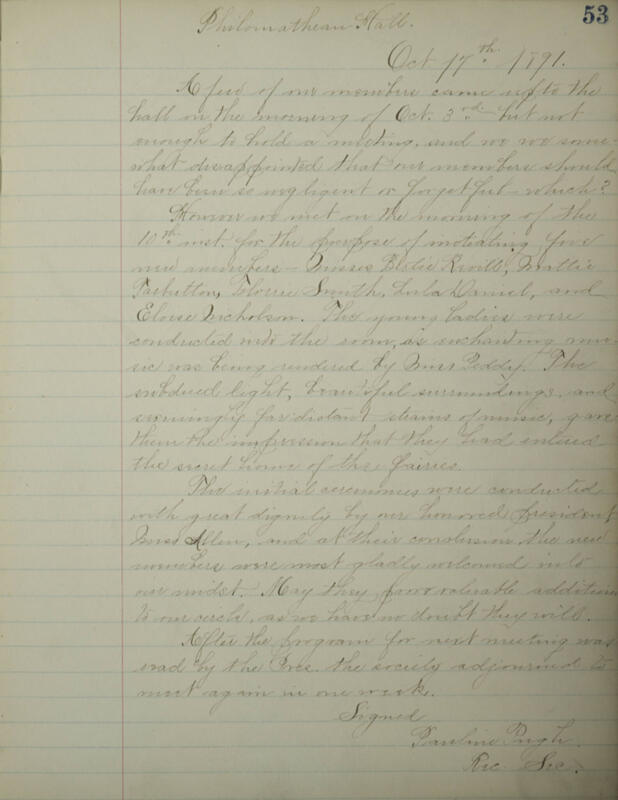 53
Philomathean Hall.
Oct 17th 1891.
A few of our members came up to the
hall on the morning of Oct. 3rd but not
enough to hold a meeting, and we we some-
what disappointed that our members should
have been so negligent or forgetful - which?
However we met on the morning of the
10th inst. for the purpose of initiating five
new members - Misses Revill, Mattie
Tarbutton, Florrie Smith, Lula Daniel, and
Eloise Nicholson. The young ladies were
conducted into the room, as enchanting mu-
sic was being rendered by Miss Peddy. The
subdued light, beautiful surroundings, and
seemingly far distant strains of music, gave
them the impression that they had entered
the secret home of the fairies.
The initial ceremonies were conducted
with great dignity by our honored president
Miss Allen, and at their conclusion the new
members were most gladly welcomed into
our midst. May they prove valuable additions
to our circle, as we have no doubt they will.
After the program for next meeting was
read by the Pres. the society adjourned to
meet again in one week.
Signed
Pauline Pugh.
Rec. Sec.